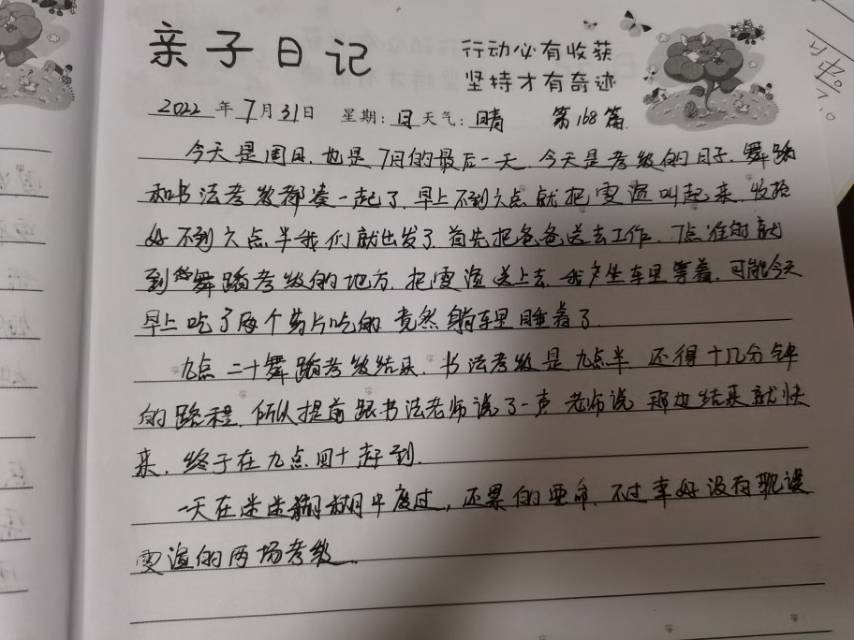 亲子日记
行动必有收获
坚持才有奇迹
2022年7月31日 星期:日 天气:晴 第168篇
今天是周日,也是7月的最后一天,今天是考级的日子,舞蹈
和书法考级都凑一起了,早上不到六点就把雯渲叫起来,收拾
好不到六点半我们就出发了,首先把爸爸送去工作,7点准时就
到舞蹈考级的地方,把雯渲送上去,我坐车里等着,可能今天
早上吃了两个药片吃的,竟然躺车里睡着了.
九点二十舞蹈考级结束,书法考级是九点半,还得十几分钟
的路程,所以提前跟书法老师说了一声,老师说那边结束就快
来,终于在九点四十赶到.
一天在迷迷糊糊中度过,还累的要命,不过幸好没有耽误
雯渲的两场考级.